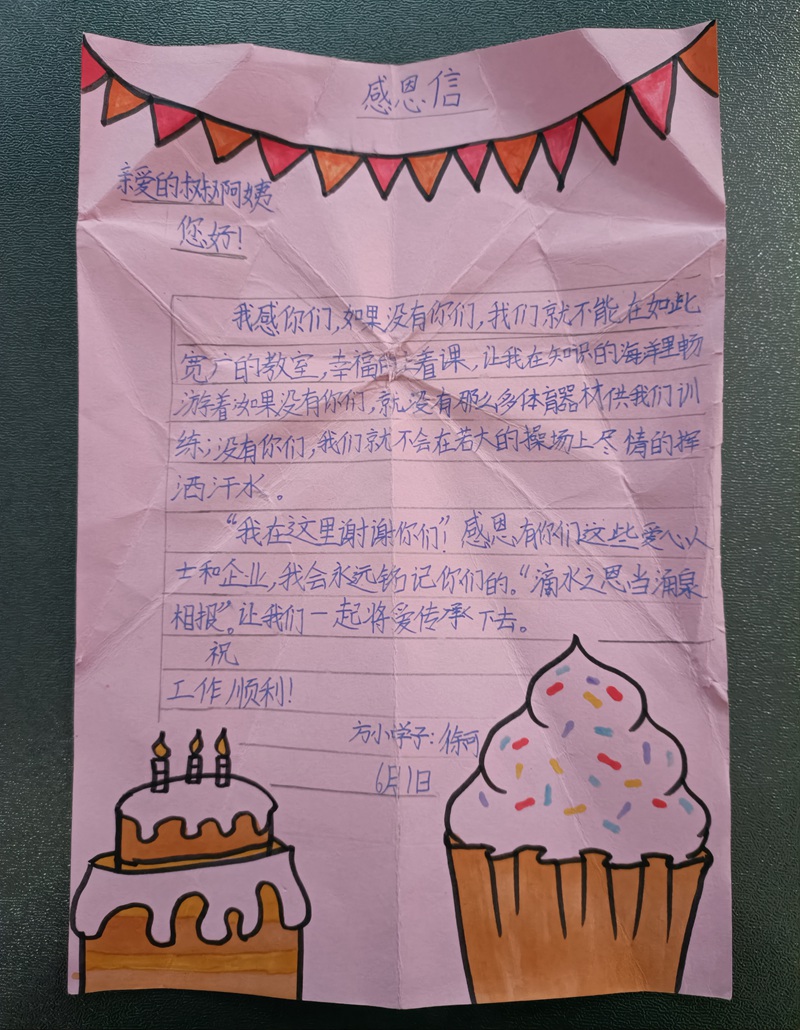 感恩信
亲爱的叔叔阿姨
您好！
我感你们,如果没有你们,我们就不能在如此
宽广的教室,幸福的上看课,让我在知识的海洋里畅
游着如果没有你们,就没有那么多体育器材供我们训
练;没有你们,我们就不会在若大的操场上尽情的挥
洒汗水。
“我在这里谢谢你们”！感恩有你们这些爱心人
士和企业,我会永远铭记你们的。“滴水之恩当涌泉
相报”。让我们一起将爱传承下去。
祝
工作顺利！
方小学子：徐可
6月1日